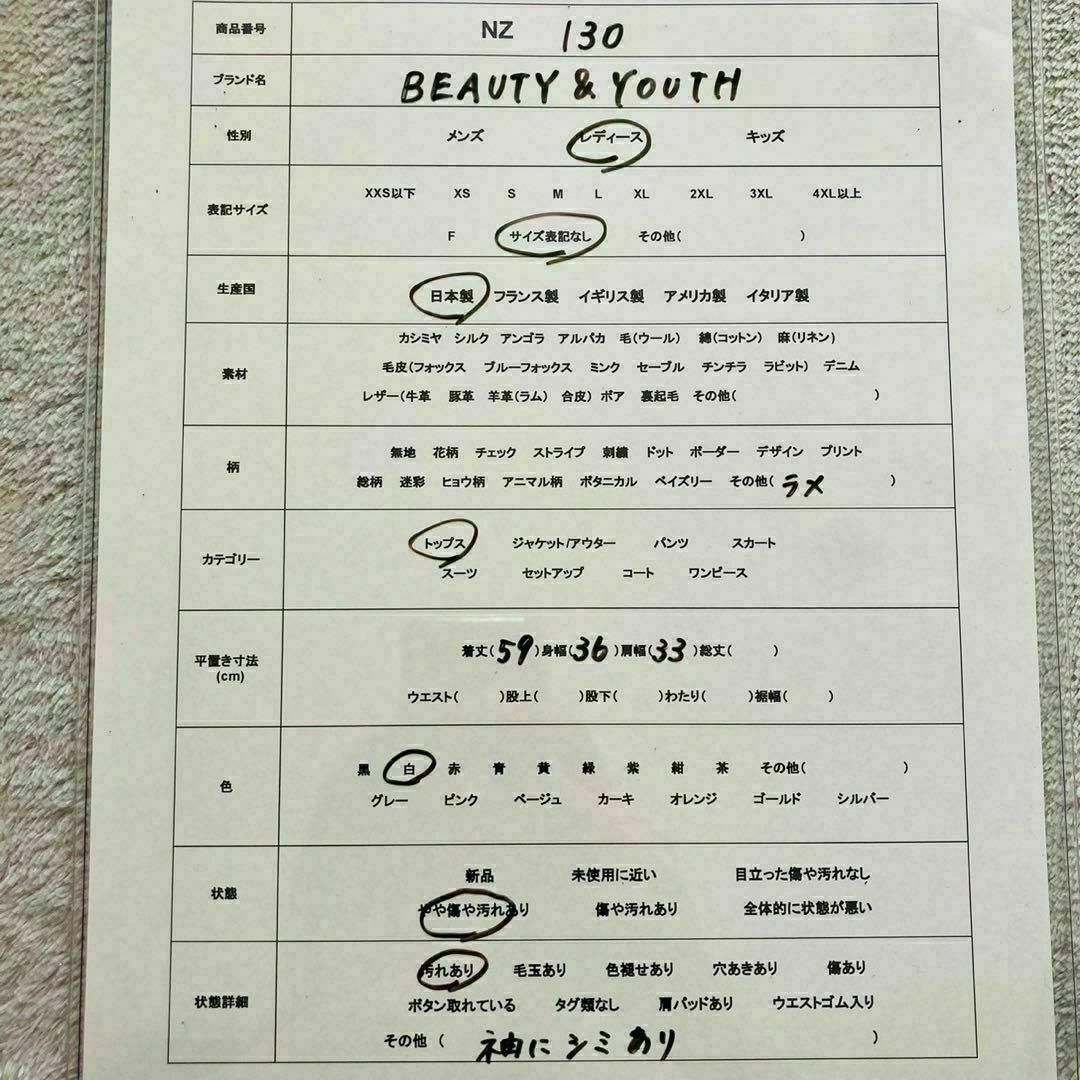 商品番号 NZ 130
ブランド名 BEAUTY & YOUTH
性別 メンズ レディース キッズ
XXS以下 XS S M L XL 2XL 3XL 4XL以上
表記サイズ
F サイズ表記なし その他( )
生産国 日本製 フランス製 イギリス製 アメリカ製 イタリア製
カシミヤ シルク アンゴラ アルパカ 毛(ウール) 綿(コットン) 麻(リネン)
素材 毛皮(フォックス ブルーフォックス ミンク セーブル チンチラ ラビット) デニム
レザー(牛革 豚革 羊革(ラム) 合皮) ボア 裏起毛 その他( )
無地 花柄 チェック ストライプ 刺繍 ドット ボーダー デザイン プリント
柄
総柄 迷彩 ヒョウ柄 アニマル柄 ボタニカル ペイズリー その他( ラメ )
トップス ジャケット/アウター パンツ スカート
カテゴリー
スーツ セットアップ コート ワンピース
平置き寸法 着丈(59)身幅(36)肩幅(33)総丈( )
(cm)
ウエスト( )股上( )股下( )わたり( )裾幅( )
黒 白 赤 青 黄 緑 紫 紺 茶 その他( )
色
グレー ピンク ベージュ カーキ オレンジ ゴールド シルバー
新品 未使用に近い 目立った傷や汚れなし
状態
やや傷や汚れあり 傷や汚れあり 全体的に状態が悪い
汚れあり 毛玉あり 色褪せあり 穴あきあり 傷あり
状態詳細 ボタン取れている タグ類なし 肩パッドあり ウエストゴム入り
その他 ( 袖にシミあり )